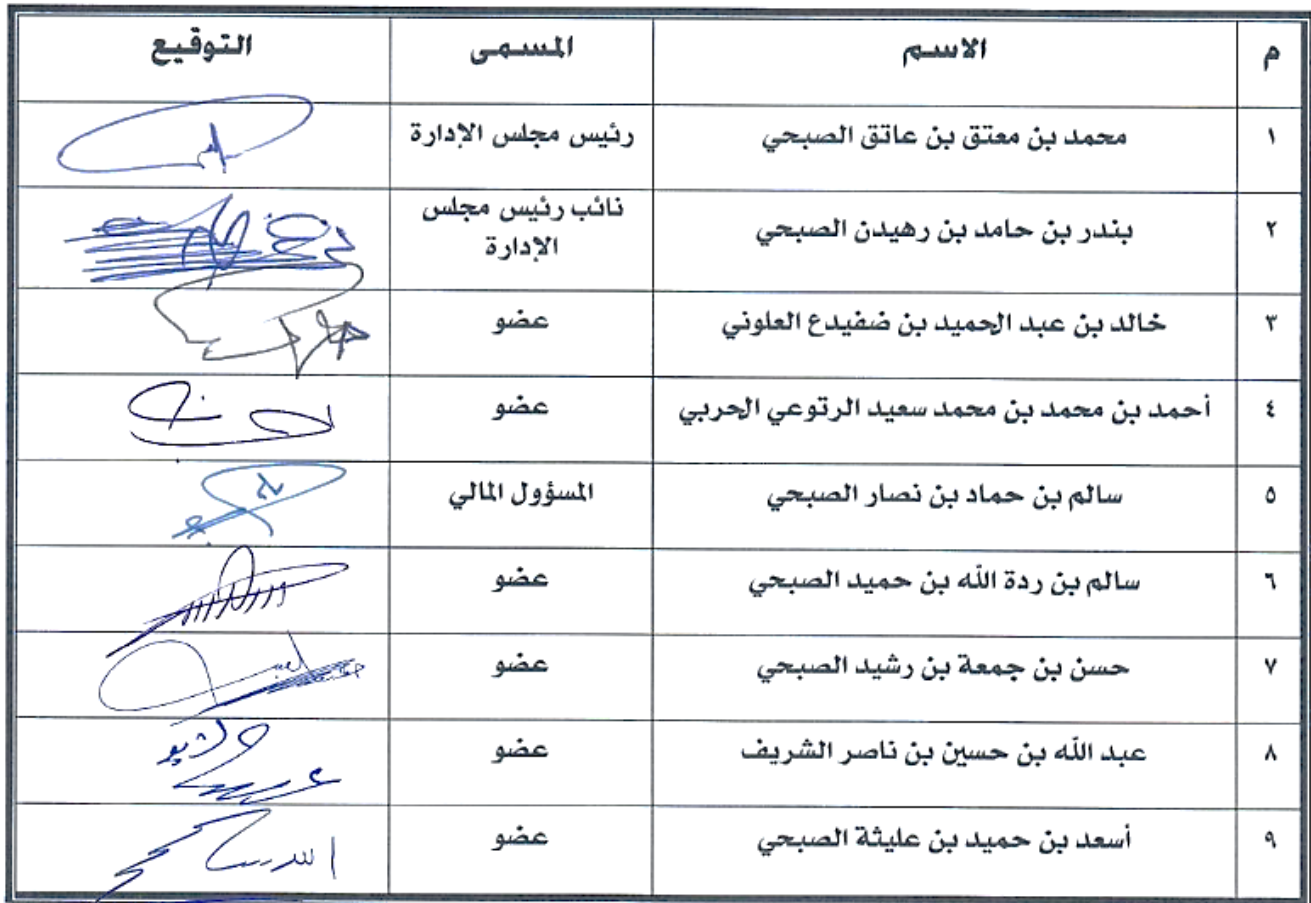 م الاسم المسمى التوقيع
١ محمد بن معتق بن عاتق الصبحي رئيس مجلس الإدارة
٢ بندر بن حامد بن رهيدن الصبحي نائب رئيس مجلس
الإدارة
٣ خالد بن عبد الحميد بن ضفيدع العلوني عضو
٤ أحمد بن محمد بن محمد سعيد الرتوعي الحربي عضو
٥ سالم بن حماد بن نصار الصبحي المسؤول المالي
٦ سالم بن ردة الله بن حميد الصبحي عضو
٧ حسن بن جمعة بن رشيد الصبحي عضو
٨ عبد الله بن حسين بن ناصر الشريف عضو
٩ أسعد بن حميد بن عليثة الصبحي عضو